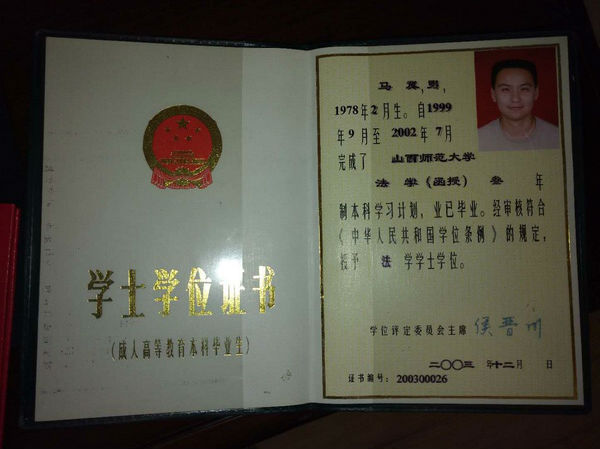 学士学位证书
(成人高等教育本科毕业生)
马 ,男,
1978年2月生。自1999
年9月至2002年7月
完成了 山西师范大学
法 学(函授) 叁 年
制本科学习计划,业已毕业。经审核符合
《中华人民共和国学位条例》的规定,
授予 法 学学士学位。
学位评定委员会主席 侯晋川
二〇〇三 年十二月 日
证书编号:200300026